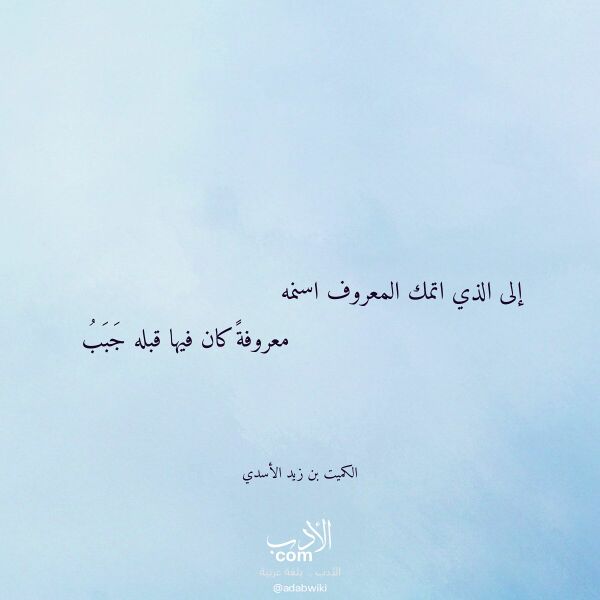 إلى الذي اتمك المعروف اسنمه
معروفةً كان فيها قبله جَبَبُ
الكميت بن زيد الأسدي
الأدب
com
الأدب .. بلغة عربية
@adabwiki